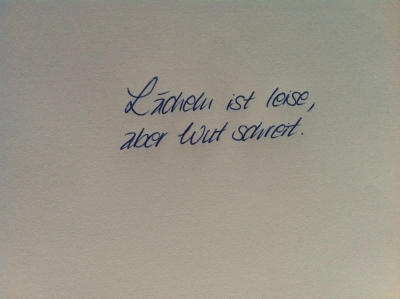 Lächeln ist leise,
aber Wut schreit.